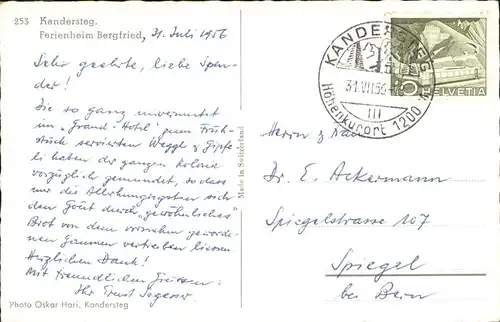 253 Kandersteg.
Ferienheim Bergfried, 31. Juli 1956
Sehr geehrte, liebe Spen-
der!
Die so ganz unvermutet
im "Grand-Hotel" zum Früh-
stück servierten Weggli & Gipfe-
li haben der ganzen Kolonie
vorzüglich gemundet, so dass
nur die Allerhungrigsten sich
den Goût durch "gewöhnliches"
Brot von dem vornehm geworde-
nen Gaumen vertreiben liessen
Herzlichen Dank!
Mit freundlichen Grüssen:
Ihr Ernst Segesser
Photo Oskar Hari, Kandersteg
Made in Switzerland
KANDERSTEG
31.VII.56
III
Höhenkurort 1200 m
10 HELVETIA
Herrn & Frau
Dr. E. Ackermann
Spiegelstrasse 107
Spiegel
bei Bern